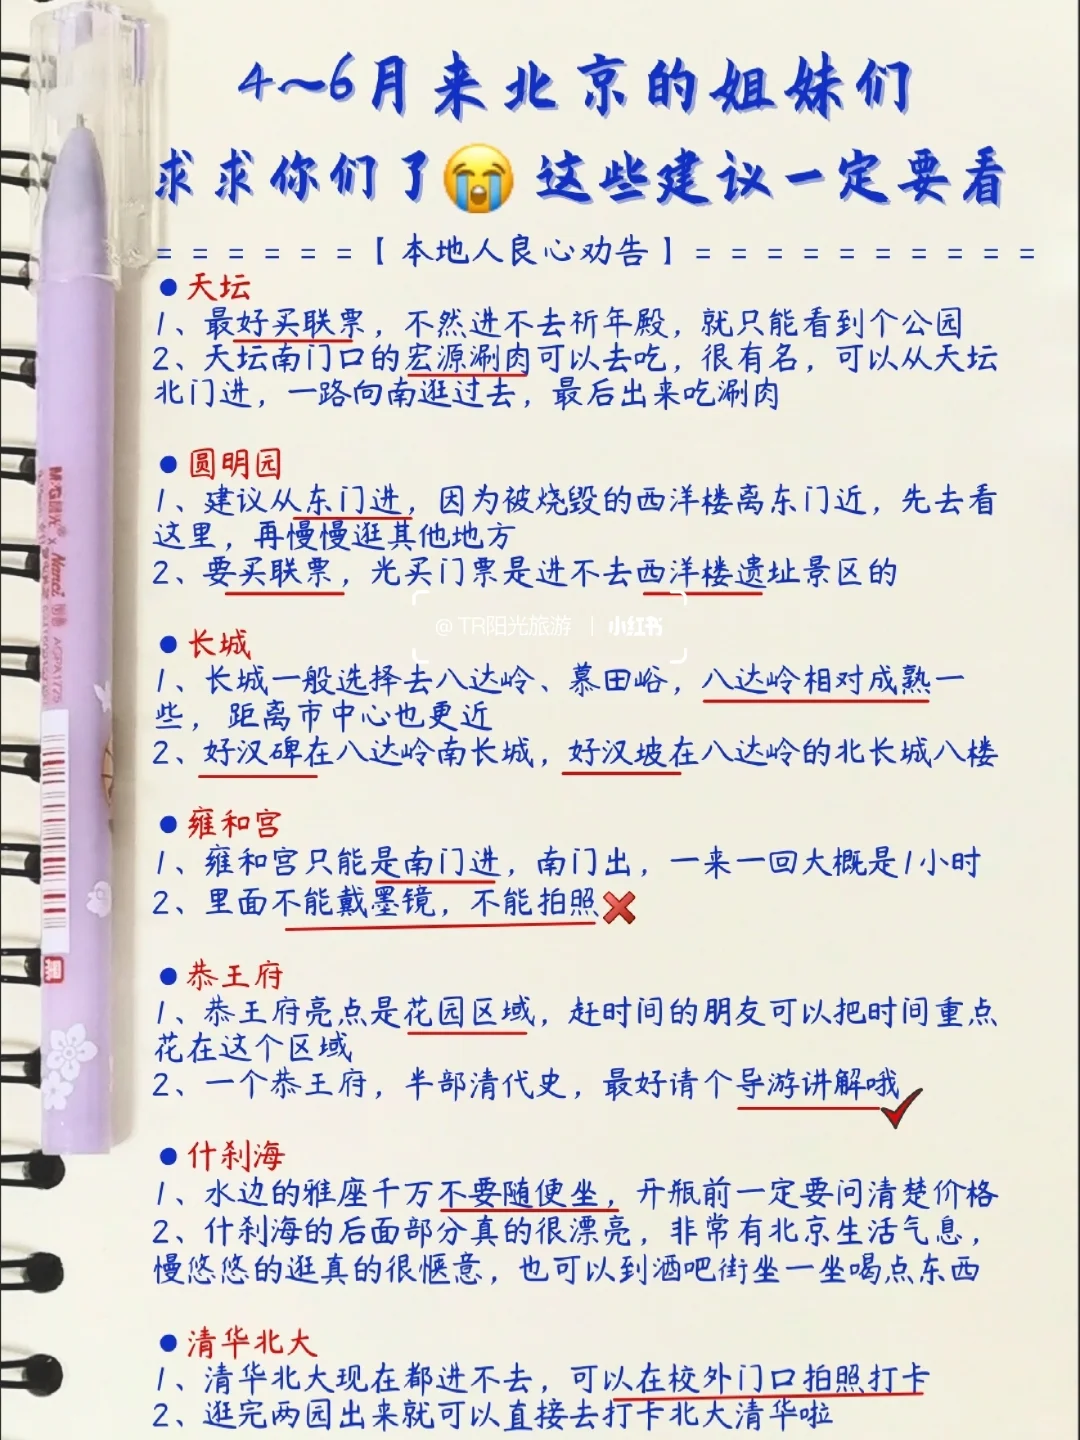 4~6月来北京的姐妹们
求求你们了😭这些建议一定要看
======【本地人良心劝告】===========
●天坛
1、最好买联票，不然进不去祈年殿，就只能看到个公园
2、天坛南门口的宏源涮肉可以去吃，很有名，可以从天坛
北门进，一路向南逛过去，最后出来吃涮肉
●圆明园
1、建议从东门进，因为被烧毁的西洋楼离东门近，先去看
这里，再慢慢逛其他地方
2、要买联票，光买门票是进不去西洋楼遗址景区的
@TR阳光旅游 | 小红书
●长城
1、长城一般选择去八达岭、慕田峪，八达岭相对成熟一
些，距离市中心也更近
2、好汉碑在八达岭南长城，好汉坡在八达岭的北长城八楼
●雍和宫
1、雍和宫只能是南门进，南门出，一来一回大概是1小时
2、里面不能戴墨镜，不能拍照❌
●恭王府
1、恭王府亮点是花园区域，赶时间的朋友可以把时间重点
花在这个区域
2、一个恭王府，半部清代史，最好请个导游讲解哦✓
●什刹海
1、水边的雅座千万不要随便坐，开瓶前一定要问清楚价格
2、什刹海的后面部分真的很漂亮，非常有北京生活气息，
慢悠悠的逛真的很惬意，也可以到酒吧街坐一坐喝点东西
●清华北大
1、清华北大现在都进不去，可以在校外门口拍照打卡
2、逛完两园出来就可以直接去打卡北大清华啦
M&G晨光® × Nanci